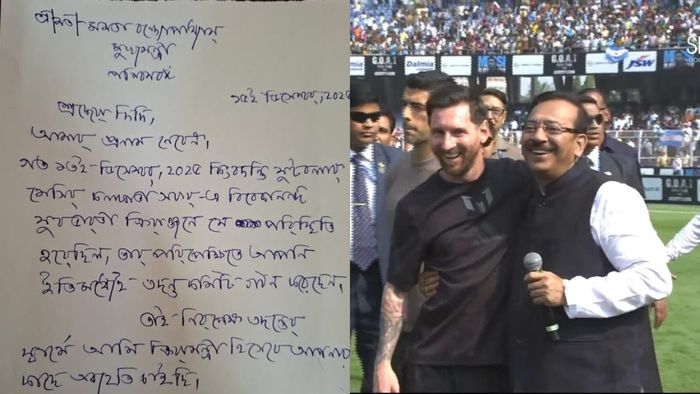 শ্রীমতী মমতা বন্দ্যোপাধ্যায়,
মুখ্যমন্ত্রী
পশ্চিমবঙ্গ
১৫ই ডিসেম্বর, ২০২৫
শ্রদ্ধেয় দিদি,
আমার প্রণাম নেবেন,
গত ১৩ই ডিসেম্বর, ২০২৫ ফুটবলার
মেসির কলকাতা সফর-এ বিবেকানন্দ
যুবভারতী ক্রীড়াঙ্গনে যে পরিস্থিতি
হয়েছিল, তার পরিপ্রেক্ষিতে আপনি
ইতিমধ্যেই তদন্ত কমিটি গঠন করেছেন,
তাই নিরপেক্ষ তদন্তের
স্বার্থে আমি ক্রীড়ামন্ত্রী হিসেবে আপনার
কাছে অব্যাহতি চাইছি।
Dalmia
G.O.A.T
JSW